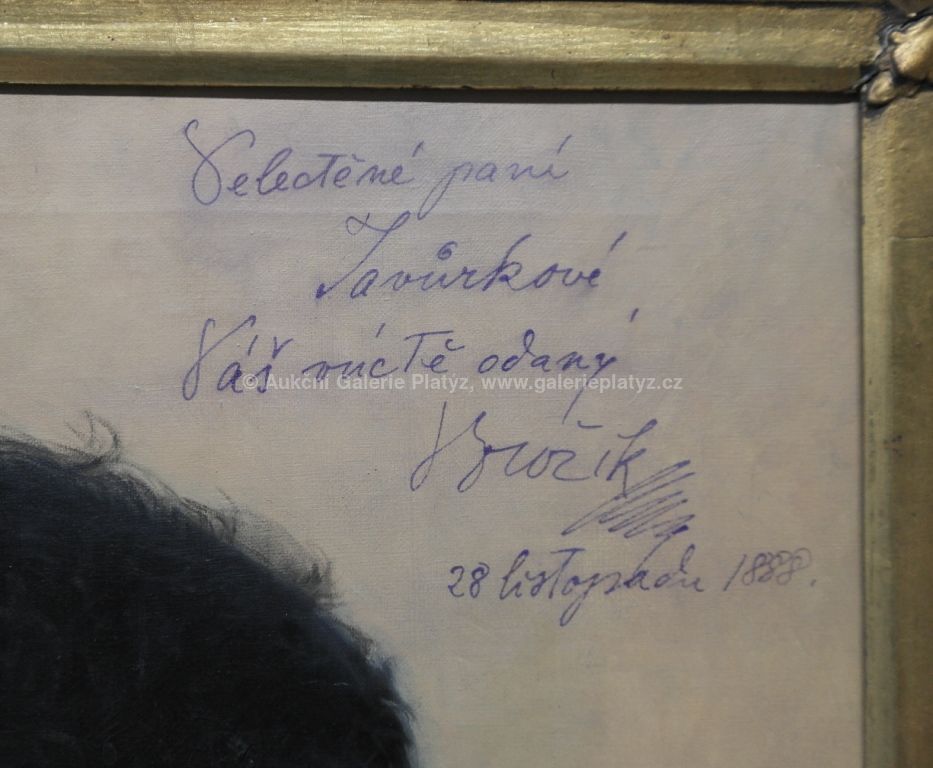 Velectěné paní
Javůrkové
Váš v úctě odaný
© Aukční Galerie Platýz, www.galerieplatyz.cz
Brožík
28 listopadu 1888.